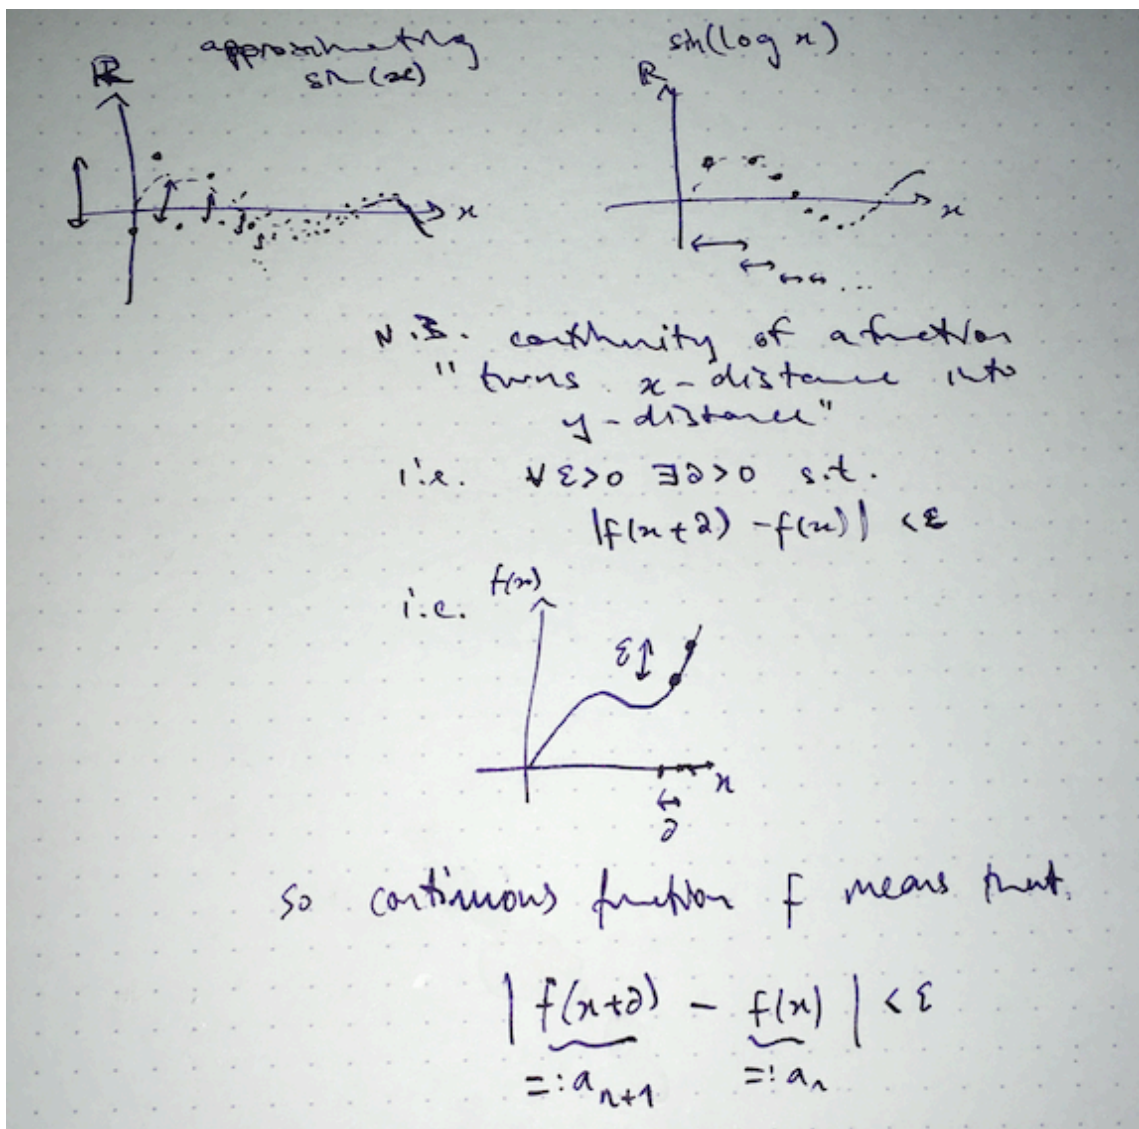 approximating
sin(x)
ℝ
x
sin(log x)
ℝ
x
...
N.B. continuity of a function
"turns x-distance into
y-distance"
i.e. ∀ε>0 ∃∂>0 s.t.
|f(x+∂) -f(x)| <ε
i.e.
f(x)
ε
x
∂
so continuous function f means that
| f(x+∂) - f(x) | < ε
=: a_{n+1} =: a_n